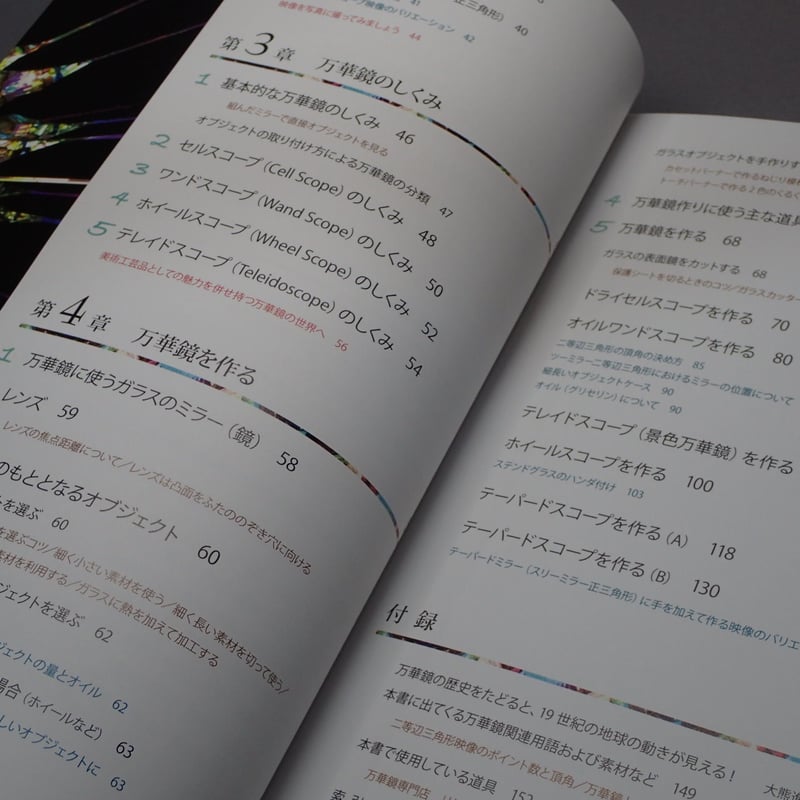 41
正三角形） 40
映像のバリエーション 42
映像を写真に撮ってみましょう 44
第3章 万華鏡のしくみ
1 基本的な万華鏡のしくみ 46
組んだミラーで直接オブジェクトを見る
オブジェクトの取り付け方による万華鏡の分類 47
2 セルスコープ（Cell Scope）のしくみ 48
3 ワンドスコープ（Wand Scope）のしくみ 50
4 ホイールスコープ（Wheel Scope）のしくみ 52
5 テレイドスコープ（Teleidoscope）のしくみ 54
美術工芸品としての魅力を併せ持つ万華鏡の世界へ 56
第4章 万華鏡を作る
1 万華鏡に使うガラスのミラー（鏡） 58
レンズ 59
レンズの焦点距離について／レンズは凸面をふたののぞき穴に向ける
のもととなるオブジェクト 60
を選ぶ 60
を選ぶコツ／細く小さい素材を使う／細く長い素材を切って使う／
素材を利用する／ガラスに熱を加えて加工する
ジェクトを選ぶ 62
ジェクトの量とオイル 62
場合（ホイールなど） 63
しいオブジェクトに 63
ガラスオブジェクトを手作りす
カセットバーナーで作るねじり模
トーチバーナーで作る2色のくるく
4 万華鏡作りに使う主な道具
5 万華鏡を作る 68
ガラスの表面鏡をカットする 68
保護シートを切るときのコツ／ガラスカッター
ドライセルスコープを作る 70
オイルワンドスコープを作る 80
二等辺三角形の頂角の決め方 85
ツーミラー二等辺三角形におけるミラーの位置について
細長いオブジェクトケース 90
オイル（グリセリン）について 90
テレイドスコープ（景色万華鏡）を作る
ホイールスコープを作る 100
ステンドグラスのハンダ付け 103
テーパードスコープを作る（A） 118
テーパードスコープを作る（B） 130
テーパードミラー（スリーミラー正三角形）に手を加えて作る映像のバリエ
付録
万華鏡の歴史をたどると、19世紀の地球の動きが見える！ 大熊進
本書に出てくる万華鏡関連用語および素材など 149
二等辺三角形映像のポイント数と頂角／万華鏡
本書で使用している道具 152
万華鏡専門店
索引